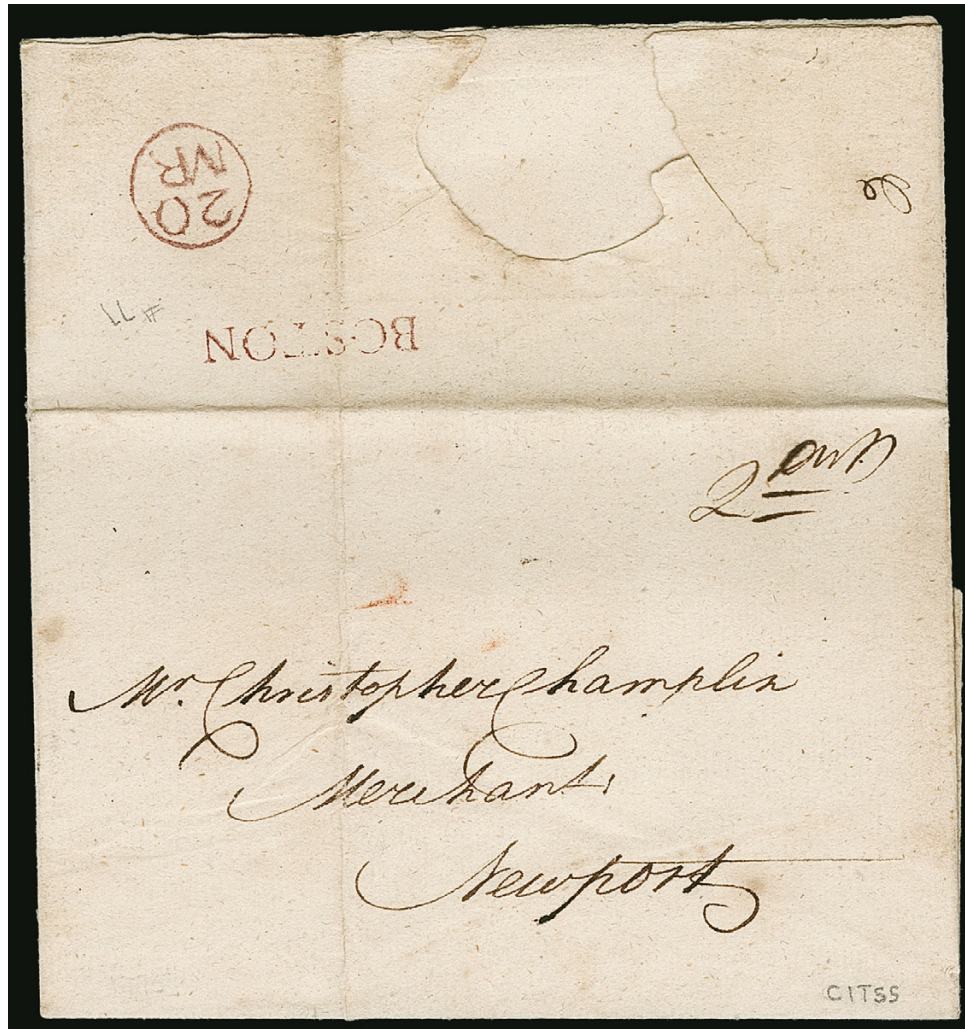 20
MR
BOSTON
2
Mr. Christopher Champlin
Merchant
Newport
C1TSS